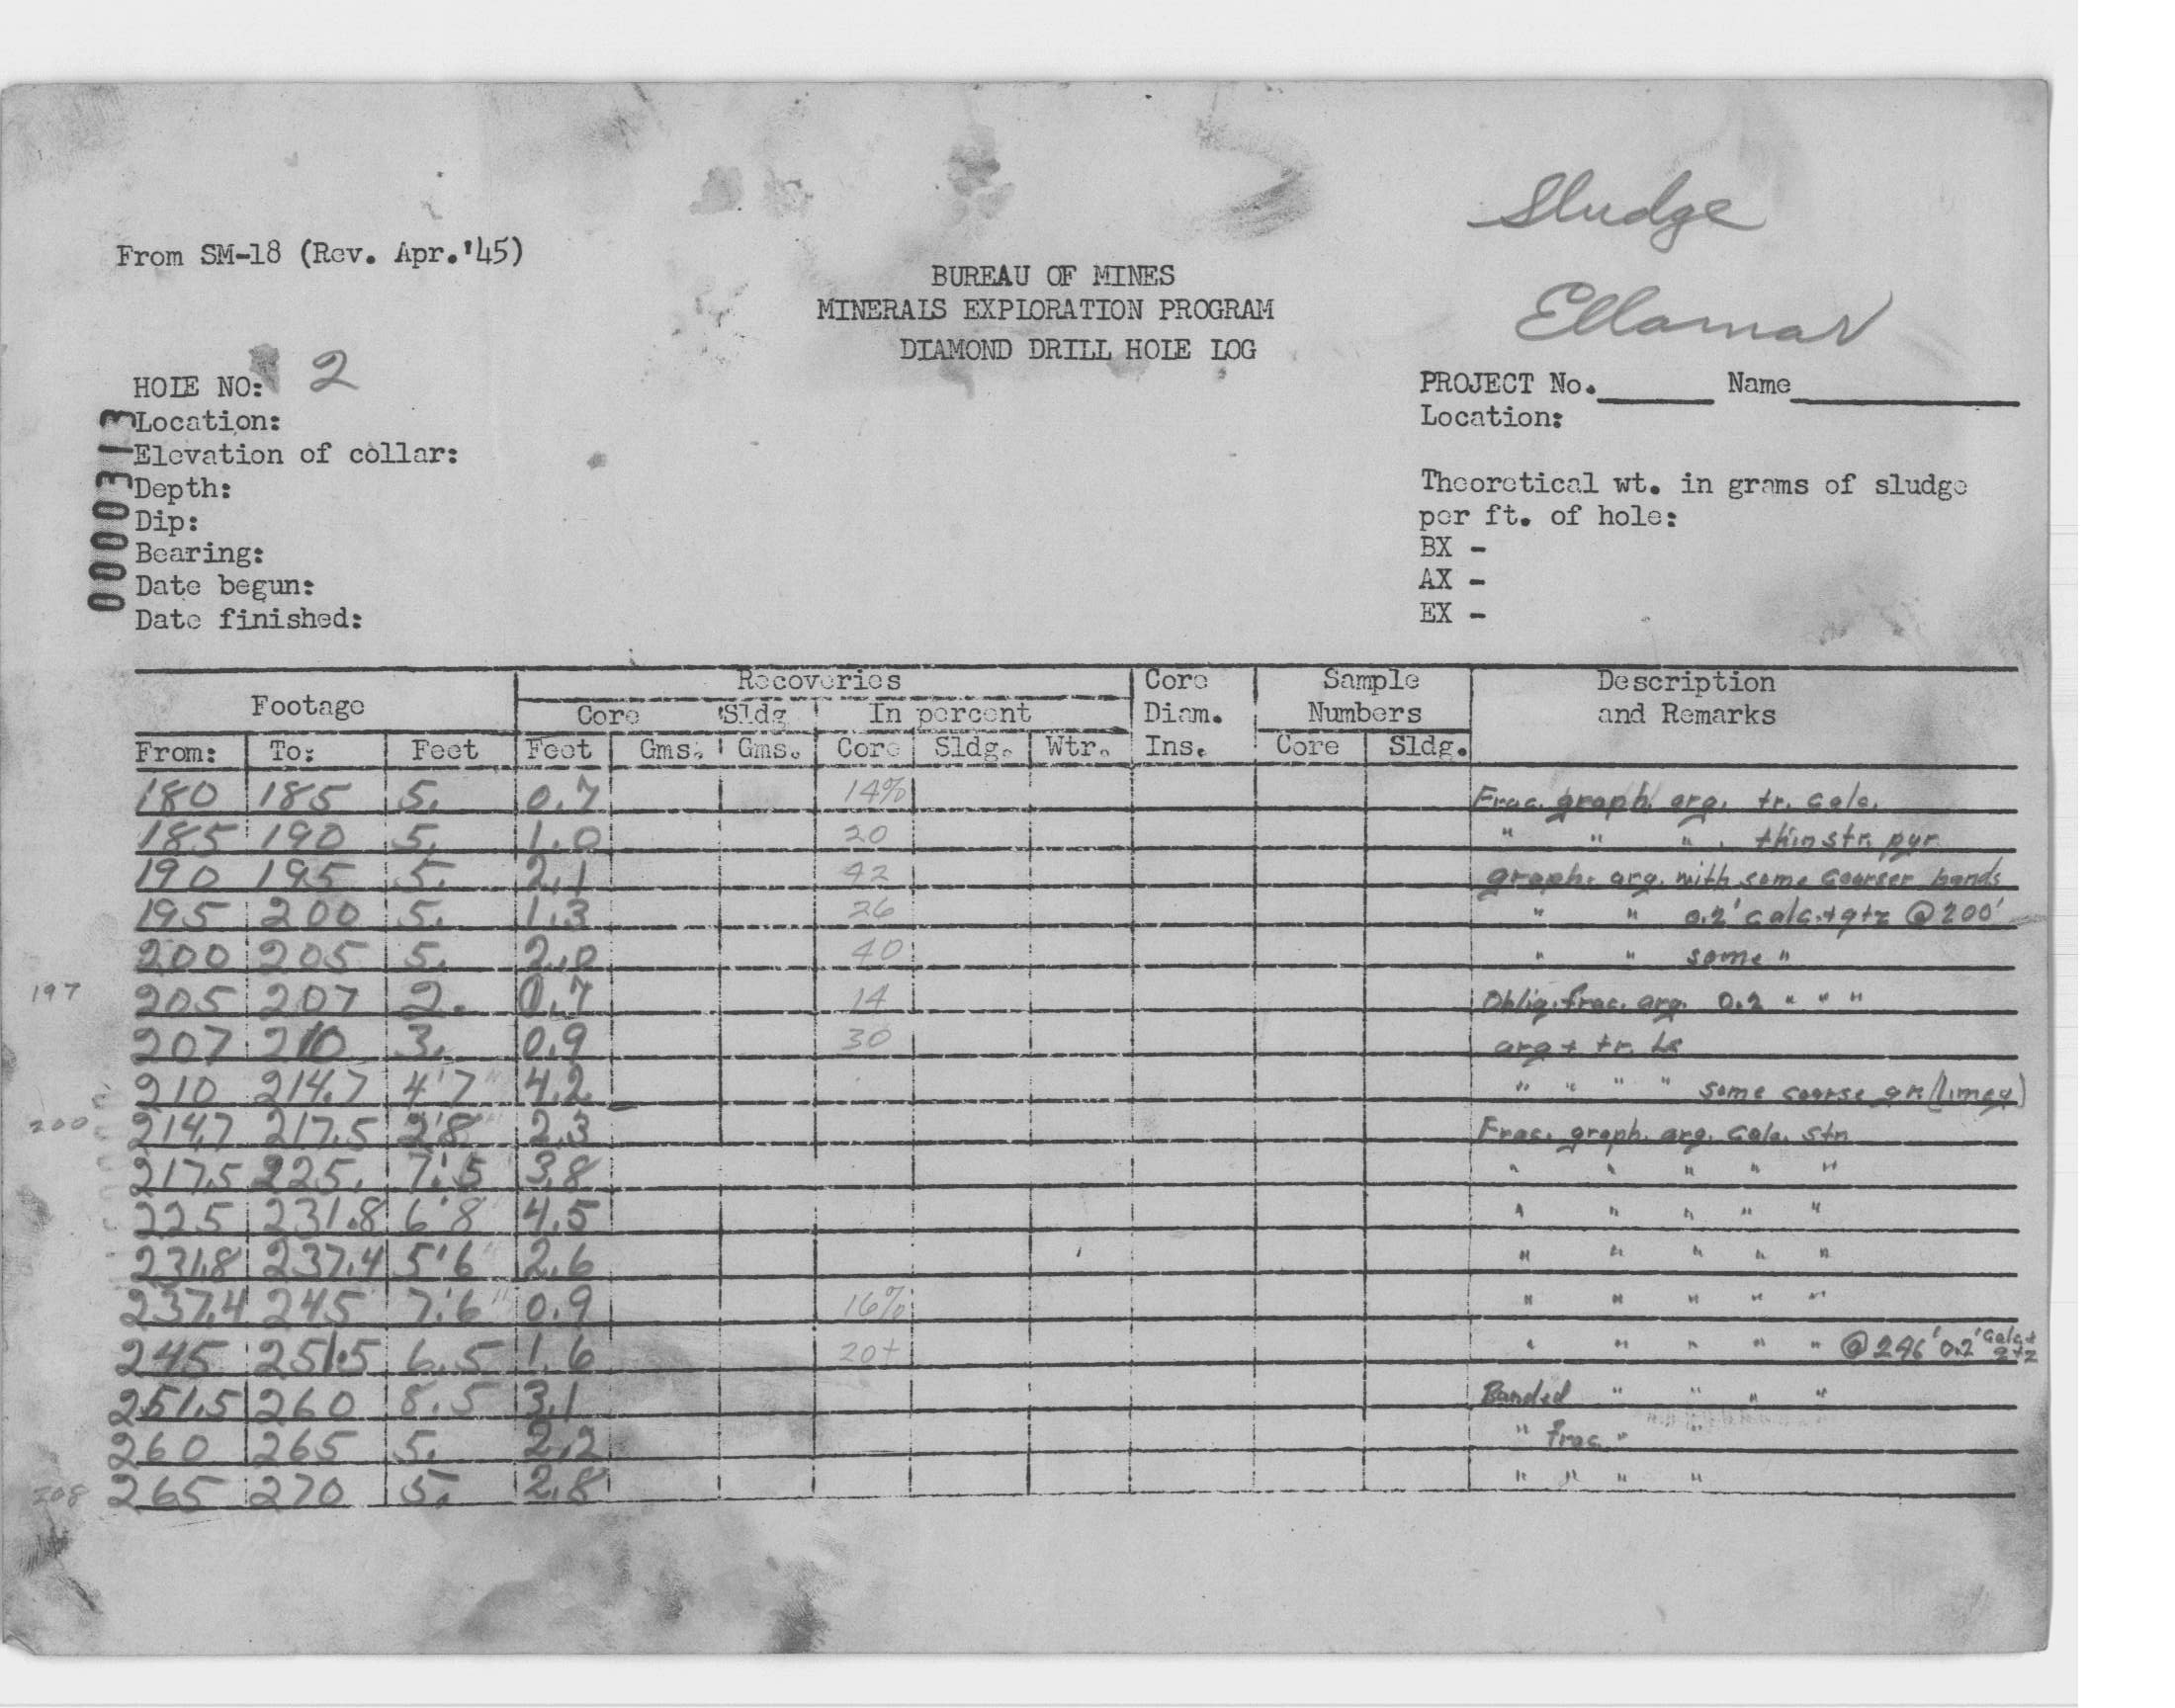 Sludge
Ellamar
From SM-18 (Rev. Apr.'45)
BUREAU OF MINES
MINERALS EXPLORATION PROGRAM
DIAMOND DRILL HOLE LOG
HOLE NO: 2
Location:
Elevation of collar:
Depth:
Dip:
Bearing:
Date begun:
Date finished:
0000313
PROJECT No. Name
Location:
Theoretical wt. in grams of sludge
per ft. of hole:
BX -
AX -
EX -
Footage Recoveries Core Sample Description
Core Sldg In percent Diam. Numbers and Remarks
From: To: Feet Feet Gms. Gms. Core Sldg. Wtr. Ins. Core Sldg.
180 185 5. 0.7 14% Frac. graph. arg. tr. calc.
185 190 5. 1.0 20 " " " . thin str. pyr.
190 195 5. 2.1 42 graph. arg. with some courser bands
195 200 5. 1.3 26 " " 0.2' calc.+qtz @ 200'
200 205 5. 2.0 40 " " some "
197 205 207 2. 0.7 14 Obliq. frac. arg. 0.2 " " "
207 210 3. 0.9 30 arg + tr. ls
210 214.7 4'7" 4.2 " " " " some coarse gr. (limey)
200 214.7 217.5 2'8" 2.3 Frac. graph. arg. calc. str.
217.5 225. 7.'5 3.8 " " " " "
225 231.8 6'8" 4.5 " " " " "
231.8 237.4 5'6" 2.6 " " " " "
237.4 245 7.'6" 0.9 16% " " " " "
245 251.5 6.5 1.6 20+ " " " " " @ 246' 0.2' calc+ qtz
251.5 260 8.5 3.1 Banded " " " "
260 265 5. 2.2 " frac. " "
208 265 270 5. 2.8 " " " "